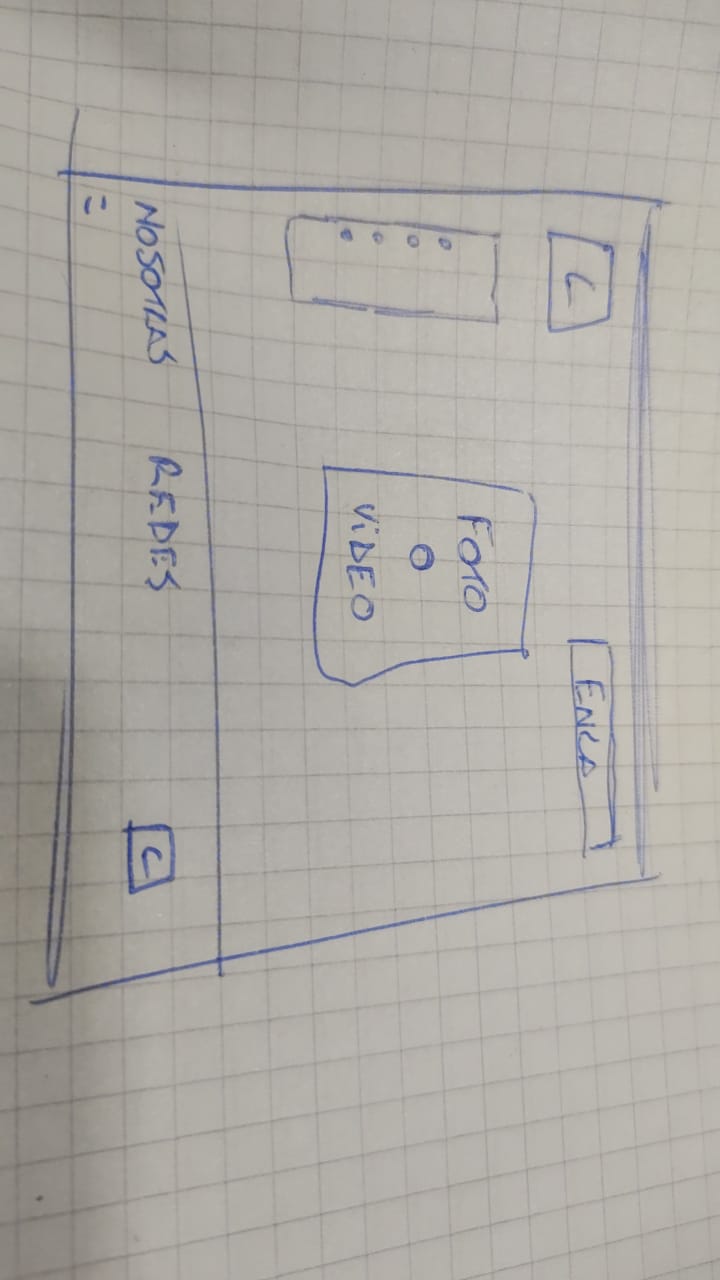 L ENCA
FOTO
O
VIDEO
NOSOTRAS REDES L
=